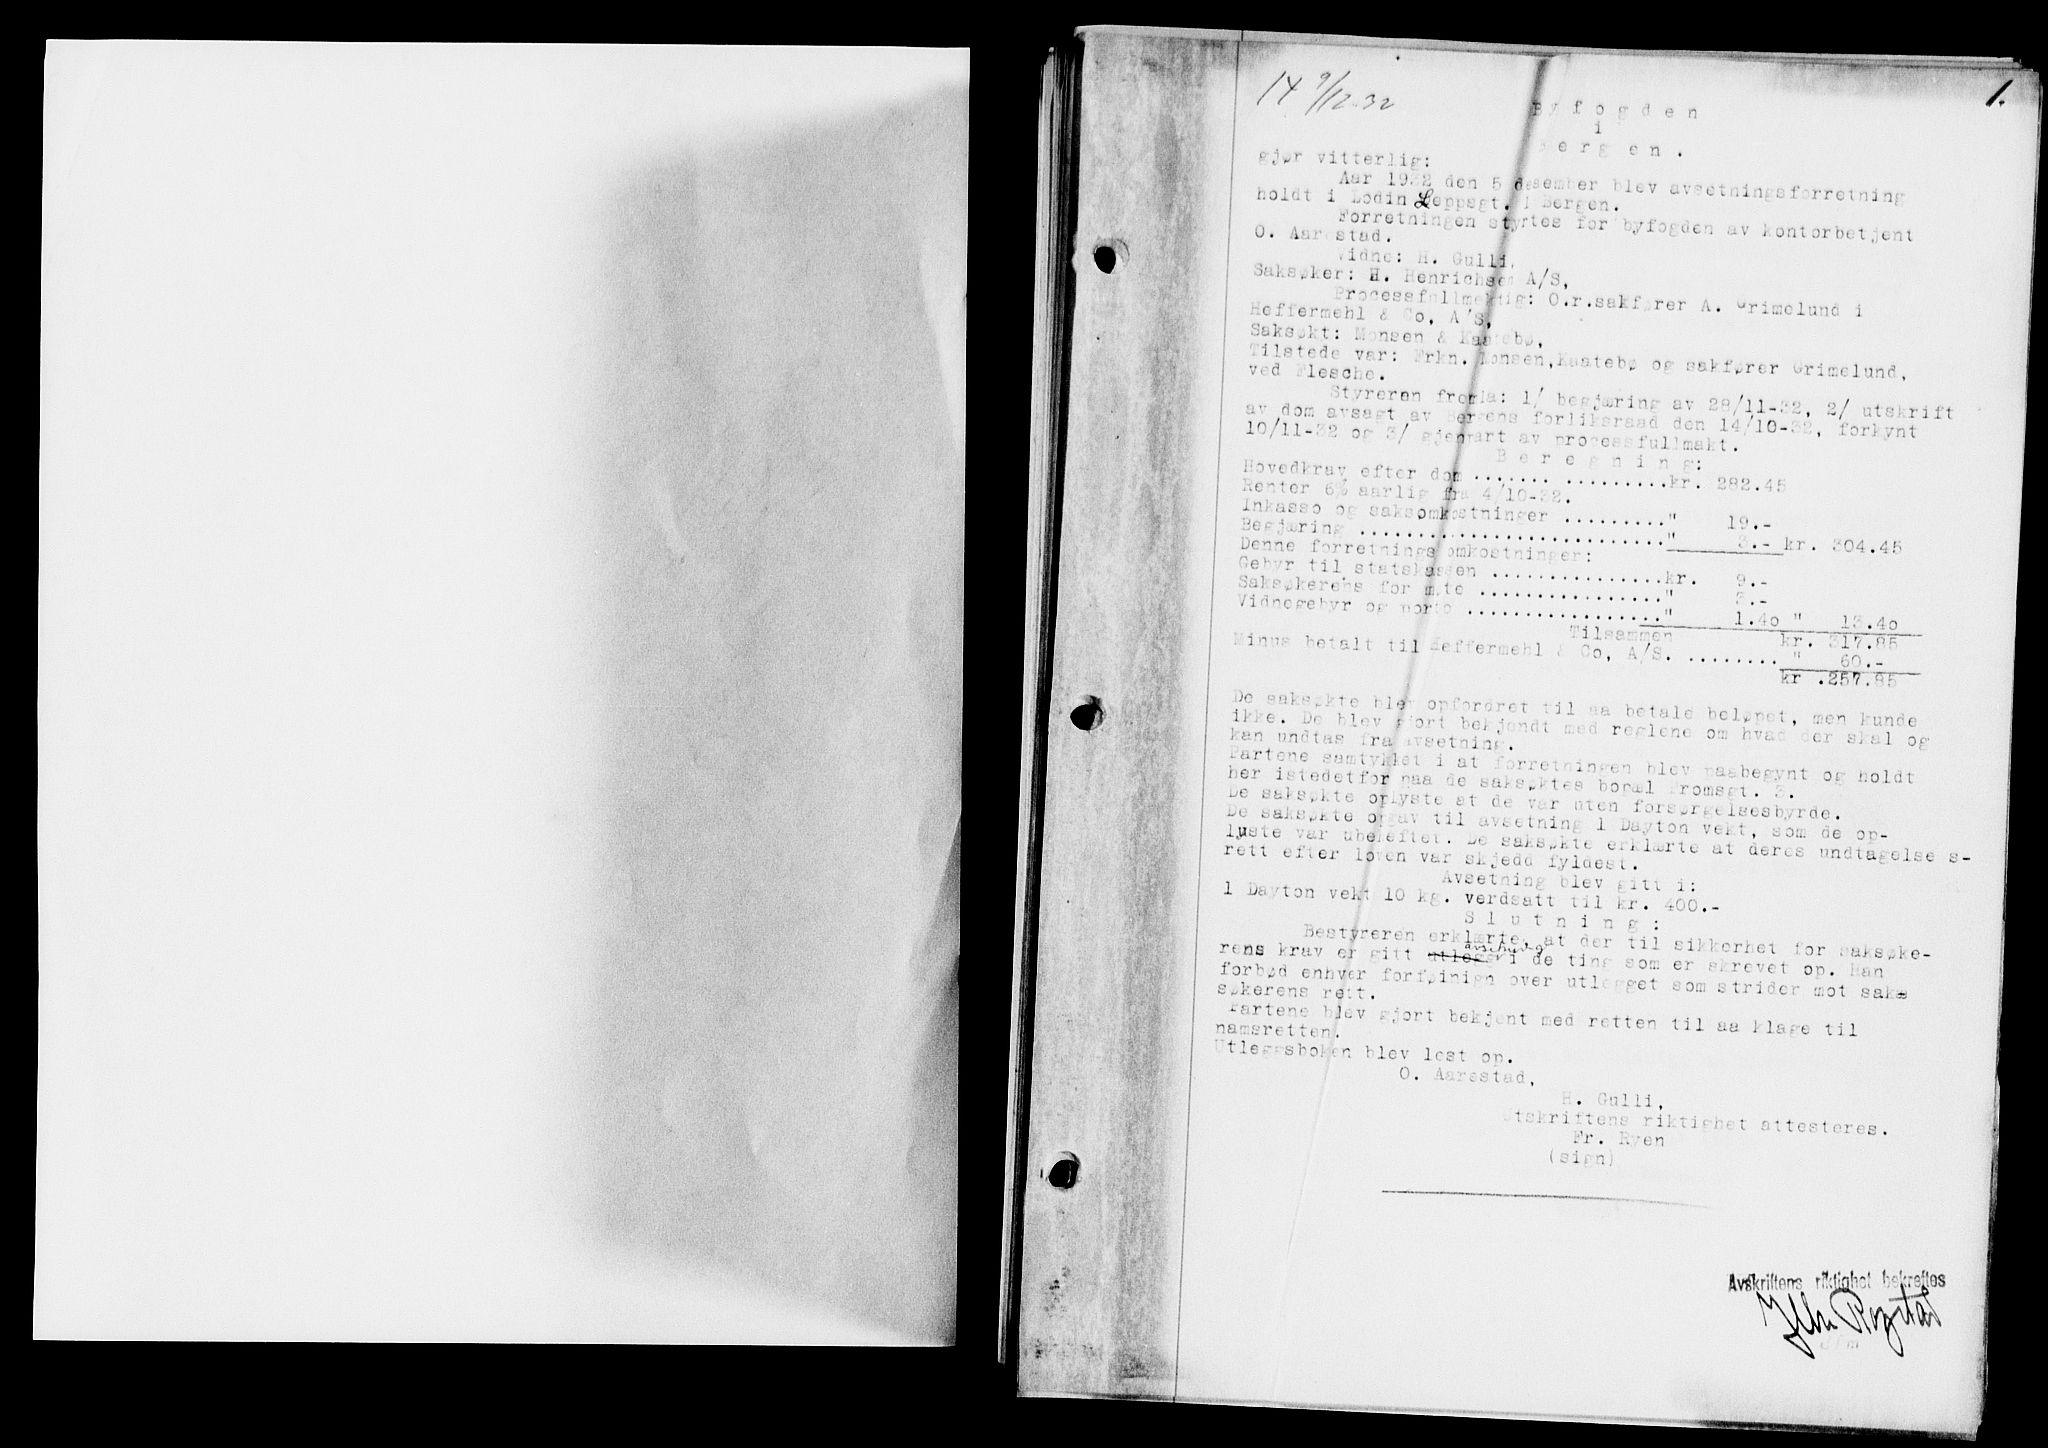 14 9/12-32
1.
Byfogden
i
Bergen.
gjør vitterlig:
Aar 1932 den 5 desember blev avsetningsforretning
holdt i Lodin Leppsgt. 1 Bergen.
Forretningen styrtes for byfogden av kontorbetjent
O. Aarestad.
Vidne: H. Gulli,
Saksøker: H. Henrichsen A/S,
Processfullmektig: O.r.sakfører A. Grimelund i
Heffermehl & Co, A/S,
Saksøkt: Monsen & Kaatebø,
Tilstede var: Frkn. Monsen, Kaatebø og sakfører Grimelund,
ved Flesche.
Styreren fremla: 1/ begjæring av 28/11-32, 2/ utskrift
av dom avsagt av Bergens forliksraad den 14/10-32, forkynt
10/11-32 og 3/ gjenpart av processfullmakt.
Beregning:
Hovedkrav efter dom ....... .........kr. 282.45
Renter 6% aarlig fra 4/10-32.
Inkasso og saksomkostninger ........." 19.-
Begjæring ............................" 3.- kr. 304.45
Denne forretnings omkostninger:
Gebyr til statskassen ...............kr. 9.-
Saksøkerens for møte ................" 3.-
Vidnegebyr og porto ................." 1.40 " 13.40
Tilsammen kr. 317.85
Minus betalt til Heffermehl & Co, A/S. ........ " 60.-
kr .257.85
De saksøkte blev opfordret til aa betale beløpet, men kunde
ikke. De blev gjort bekjendt med reglene om hvad der skal og
kan undtas fra avsetning.
Partene samtykket i at forretningen blev paabegynt og holdt
her istedetfor paa de saksøktes bopæl Fromsgt. 3.
De saksøkte oplyste at de var uten forsørgelsesbyrde.
De saksøkte opgav til avsetning 1 Dayton vekt, som de op-
lyste var ubeheftet. De saksøkte erklærte at deres undtagelse s-
rett efter loven var skjedd fyldest.
Avsetning blev gitt i:
1 Dayton vekt 10 kg. verdsatt til kr. 400.-
Slutning:
Bestyreren erklærte, at der til sikkerhet for saksøke-
rens krav er gitt utlegg avsetning i de ting som er skrevet op. Han
forbød enhver forføinign over utlegget som strider mot saks
søkerens rett.
Partene blev gjort bekjent med retten til aa klage til
namsretten.
Utleggsboken blev lest op.
O. Aarestad,
H. Gulli,
Utskriftens riktighet attesteres.
Fr. Ryen
(sign)
Avskriftens riktighet bekreftes